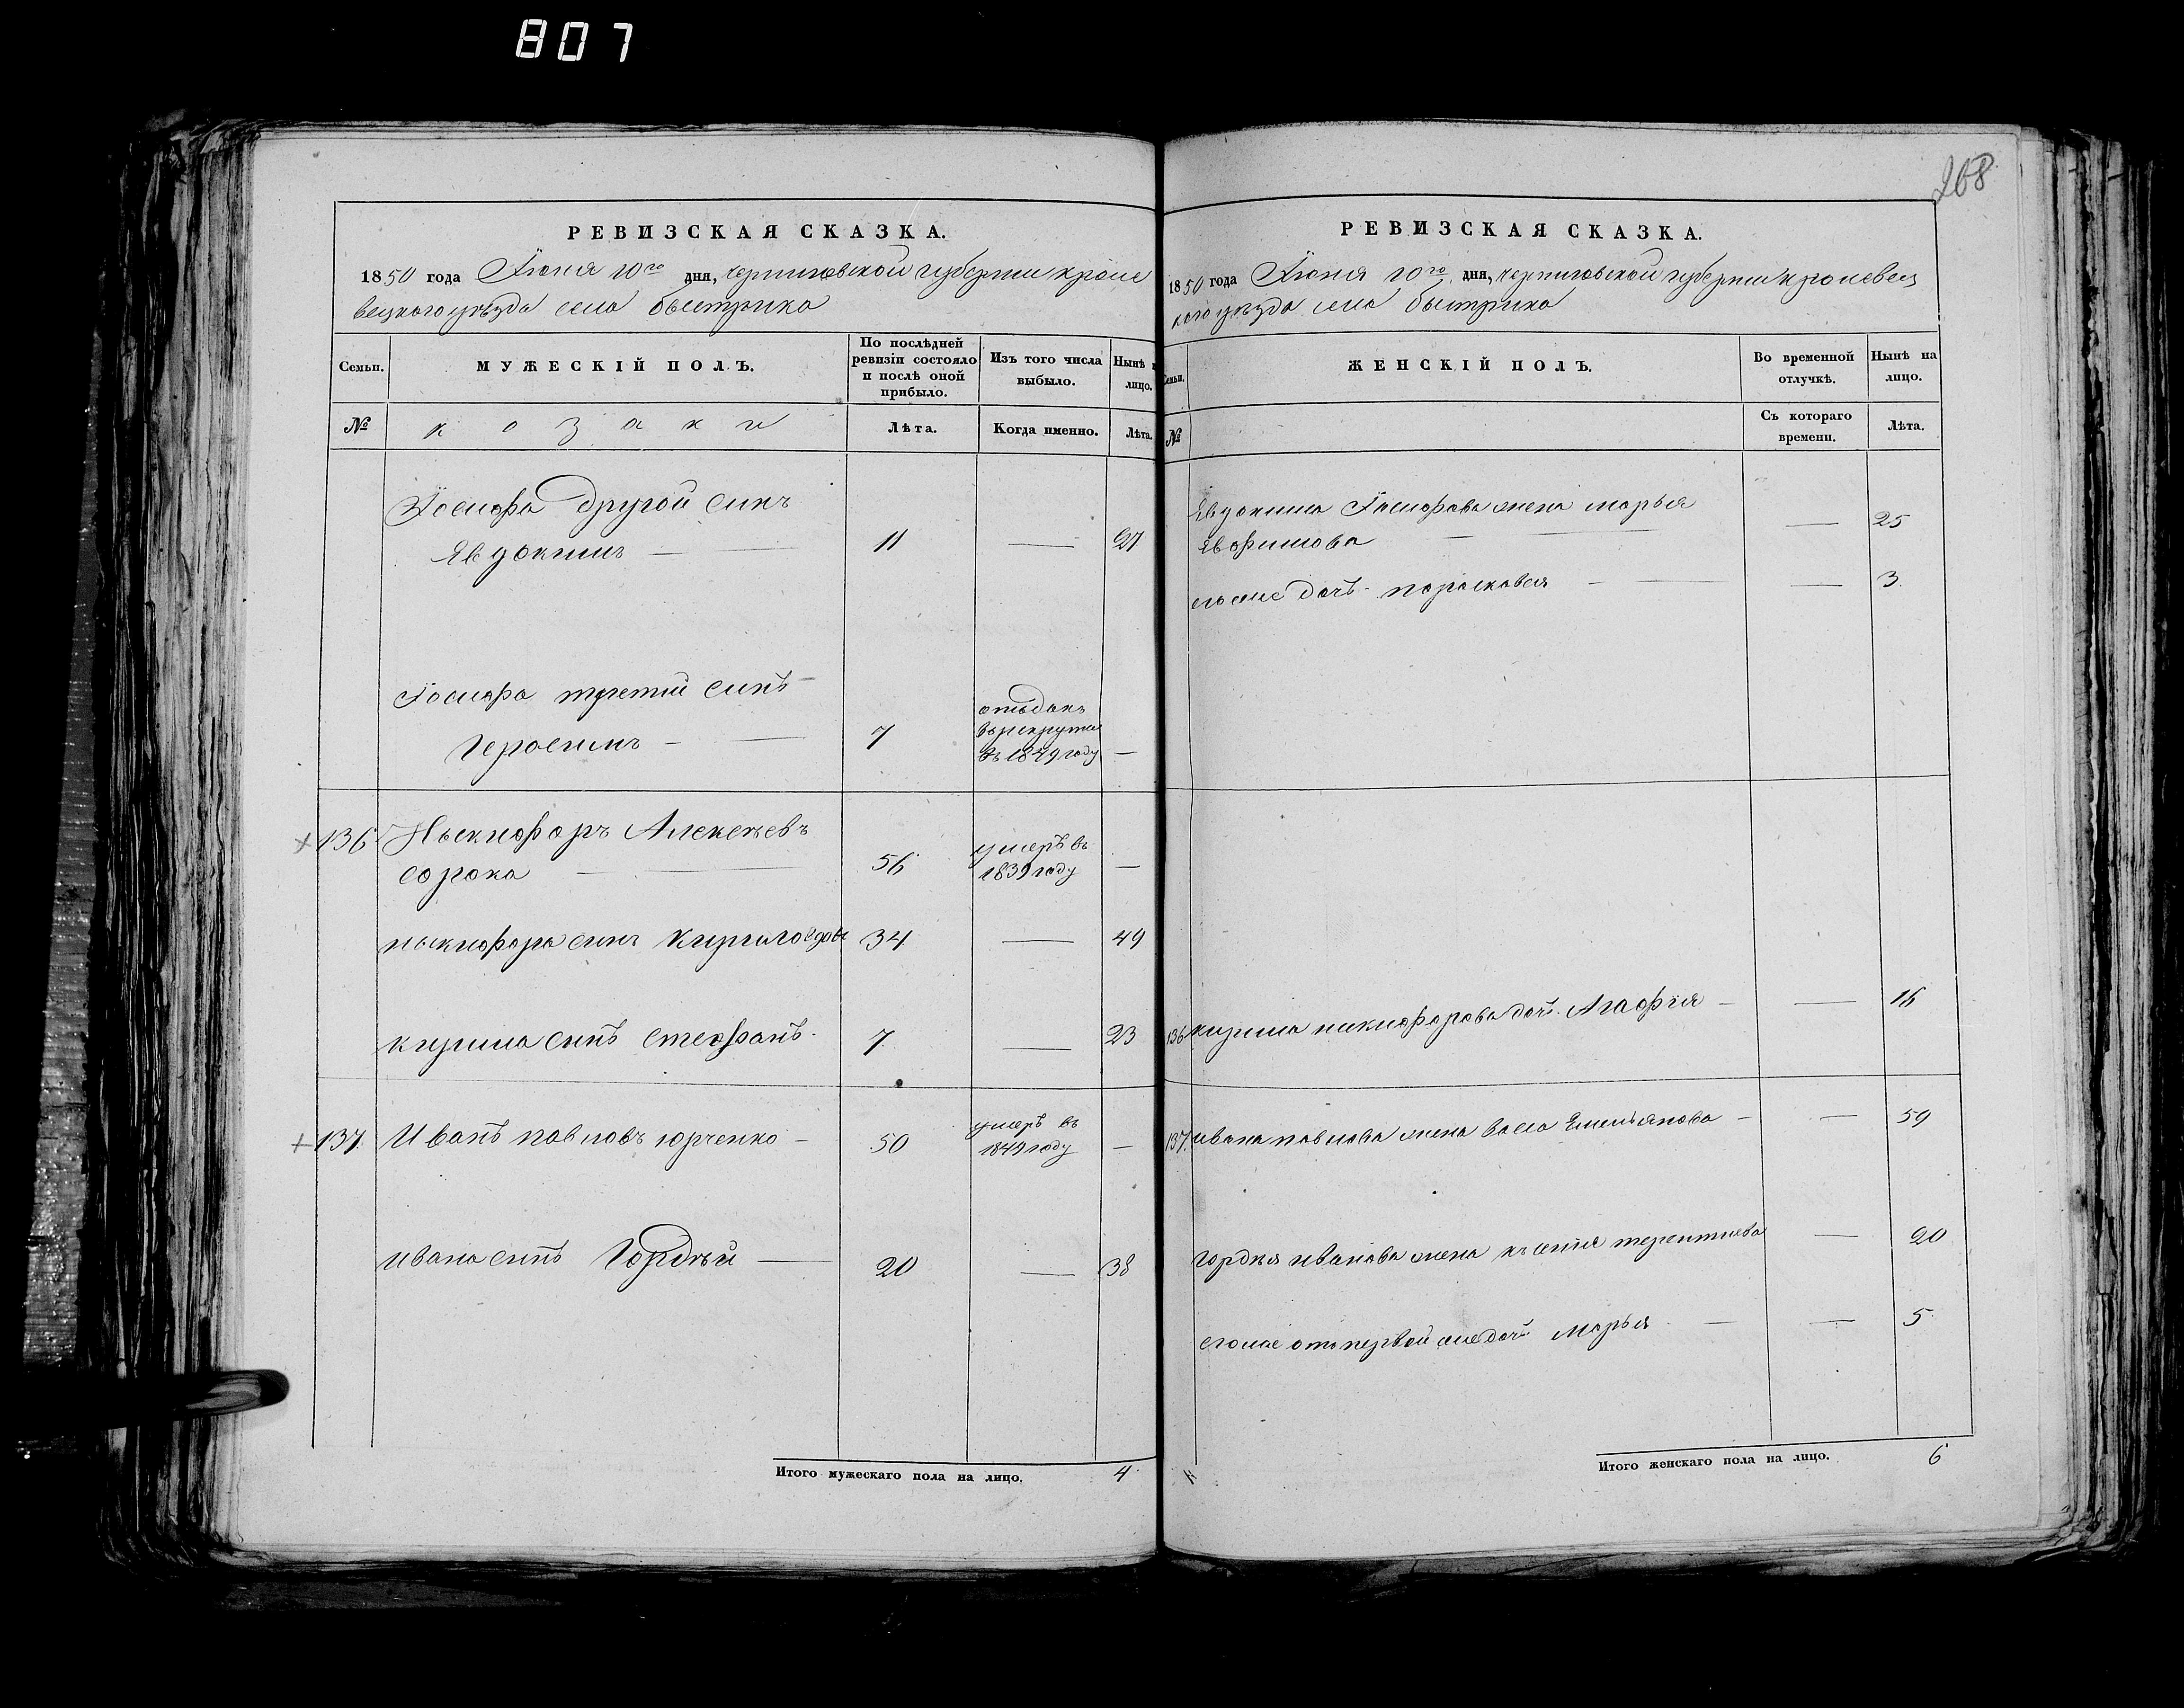 807
268
РЕВИЗСКАЯ СКАЗКА.
1850 года Іюня 10го дня, черниговской губернии кроле
вецкого уѣзда села быстрика
Семьи.
МУЖЕСКІЙ ПОЛЪ.
По послѣдней
ревизіи состояло
и послѣ оной
прибыло.
Изъ того числа
выбыло.
Нынѣ н
лицо.
№
козаки
Лѣта.
Когда именно.
Лѣта.
Іосифа другой синъ
Явдокимъ — — 11 — 27
Іосифа третий синъ
Герасимъ — — 7
отъданъ
въ рекруты
въ 1849 году —
136 Ныкифоръ Алексѣевъ
сорока — — 56
умеръ въ
1839 году —
ныкифора синъ Кирило 34 — 49
кирила синъ стефанъ 7 — 23
137. Иванъ павловъ юрченко — 50
умеръ въ
1849 году —
ивана синъ Гордѣй — 20 — 38
Итого мужескаго пола на лицо. 4
РЕВИЗСКАЯ СКАЗКА.
1850 года Іюня 10го дня, черниговской губернии кролевец
кого уѣзда села быстрика
Семьи.
ЖЕНСКІЙ ПОЛЪ.
Во временной
отлучкѣ.
Нынѣ на
лицо.
№
Съ котораго
времени.
Лѣта.
Явдокима Іосифова жена марья
Явфимова — — — 25
его же дочь параскавея — — — 3.
136 кирила никифорова дочь Агафія — — 16
137. ивана павлова жена васса Емельянова — — 59
Гордѣя иванова жена терентиева — 20
его же отъ первой жены дочь Марья — — 5
Итого женскаго пола на лицо. 6